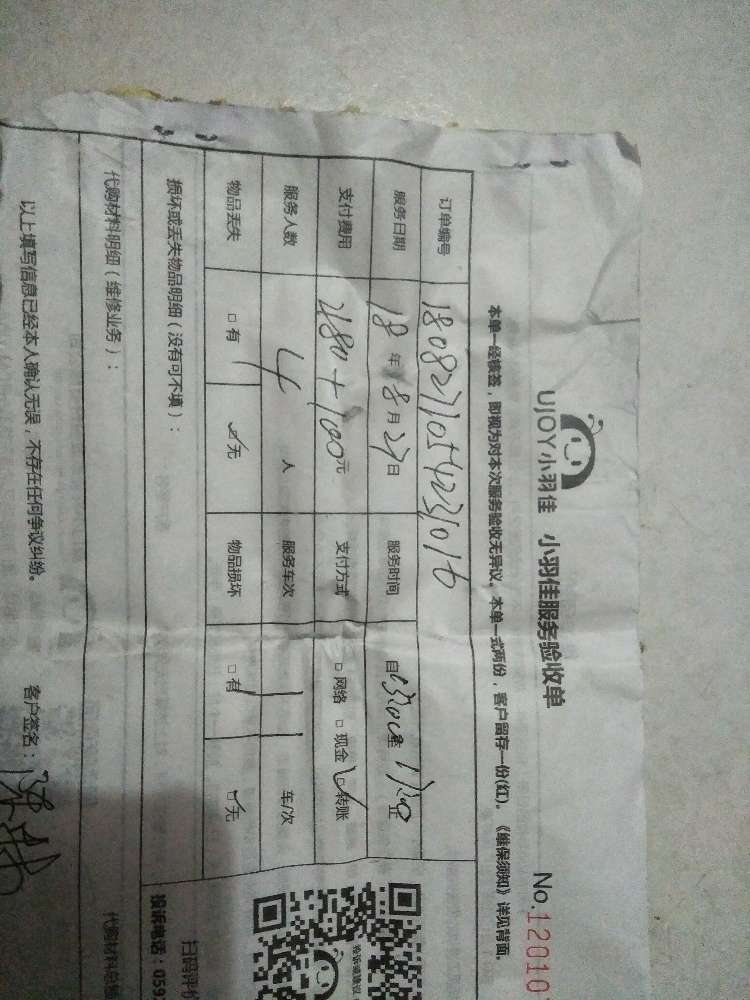 UJOY小羽佳 小羽佳服务验收单 No.120107
本单一经核签，即视为对本次服务验收无异议。本单一式两份，客户留存一份(红)。《维保须知》详见背面。
订单编号 1808271054231016
服务日期 18年8月27日 服务时间 自 至 止
支付费用 480+700元 支付方式 □网络 □现金 ☑转账
服务人数 4人 服务车次 1 车/次
物品丢失 □有 ☑无 物品损坏 □有 ☑无
损坏或丢失物品明细（没有可不填）：
代购材料明细（维修业务）：
以上填写信息已经本人确认无误，不存在任何争议纠纷。 客户签名：
代购材料总额
投诉或建议
扫码评价
投诉电话：059